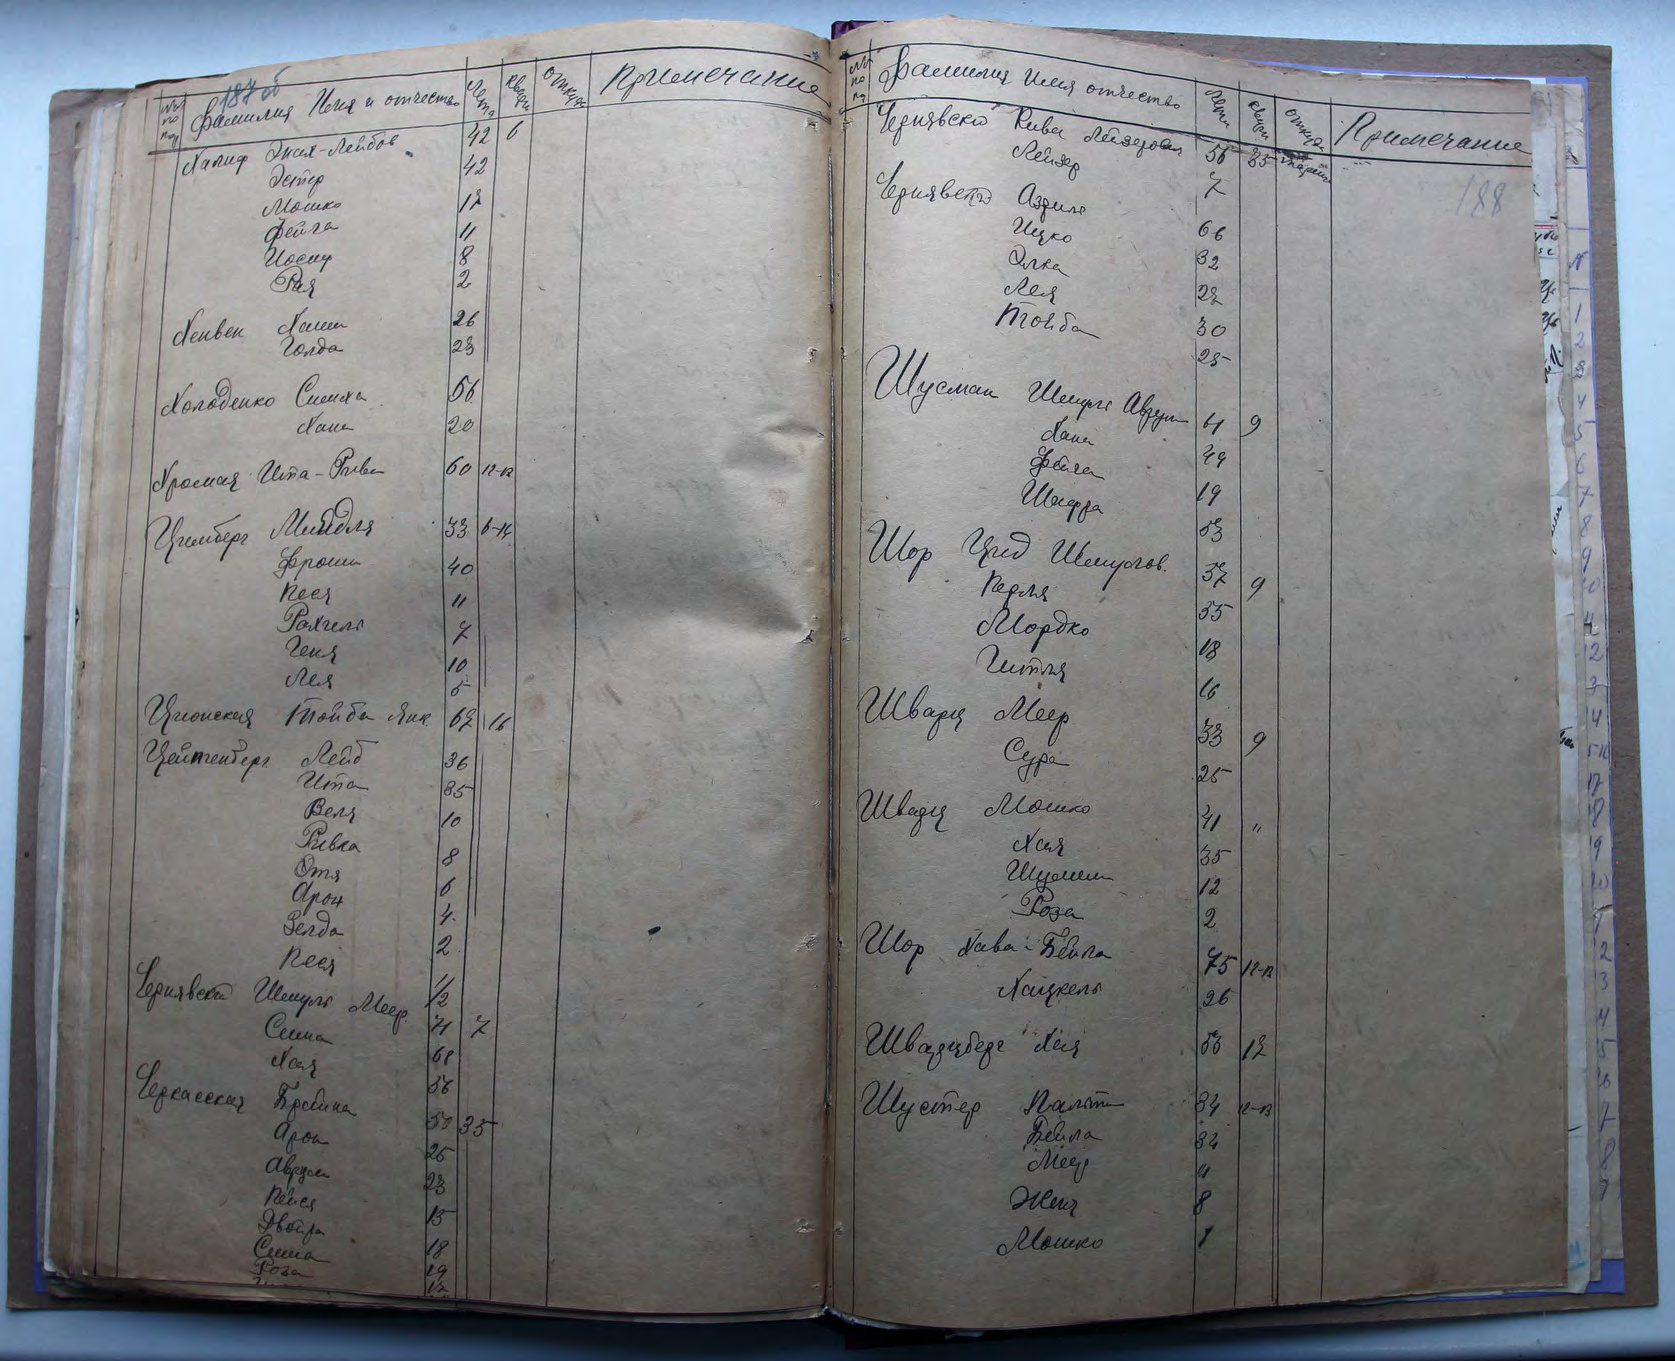 187 об
№№ по пор Фамилия Имя и отчество Лета Кварт Откуда Примечание
Халиф Эних-Лейбов 42 6
Эстер 42
Мошко 17
Фейга 11
Иосиф 8
Рая 2
Хенвен Хаим 26
Голда 23
Холоденко Симха 56
Хана 20
Хромая Ита-Рива 60 12-13
Цимберг Миндля 33 6-14
Фроим 40
Песя 11
Рахиль 7
Геня 10
Лея 5
Ционская Тойба Янк. 67 16
Цейтенберг Лейб 36
Ита 35
Веля 10
Ривка 8
Отя 6
Арон 4
Зелда 2
Песя 1/2
Чернявский Шмуль Меер. 71 7
Сима 68
Хая 56
Черкасская Брейна 50 35
Арон 25
Аврум 23
Пейся 15
Двойра 18
Сима 19
Роза 17
№№ по Фамилия Имя отчество Лета Кварт Откуда Примечание
188
Чернявский Кива Лейзеров 56 35
Лейзер 7
Чернявский Азриль 66
Ицко 32
Элка 27
Лея 30
Тойба 25
Шусман Шмуль Аврум 61 9
Хана 49
Фейга 19
Шифра 53
Шор Цид Шмулов. 57 9
Перля 55
Мордко 18
Гитля 16
Шварц Меер 33 9
Сура 25
Шварц Мошко 41 "
Хая 35
Шулим 12
Роза 2
Шор Хава-Бейла 75 12-13
Хацкель 26
Шварцберг Хая 55 17
Шустер Пальти 34 12-13
Бейла 34
Меер 11
Женя 8
Мошко 1